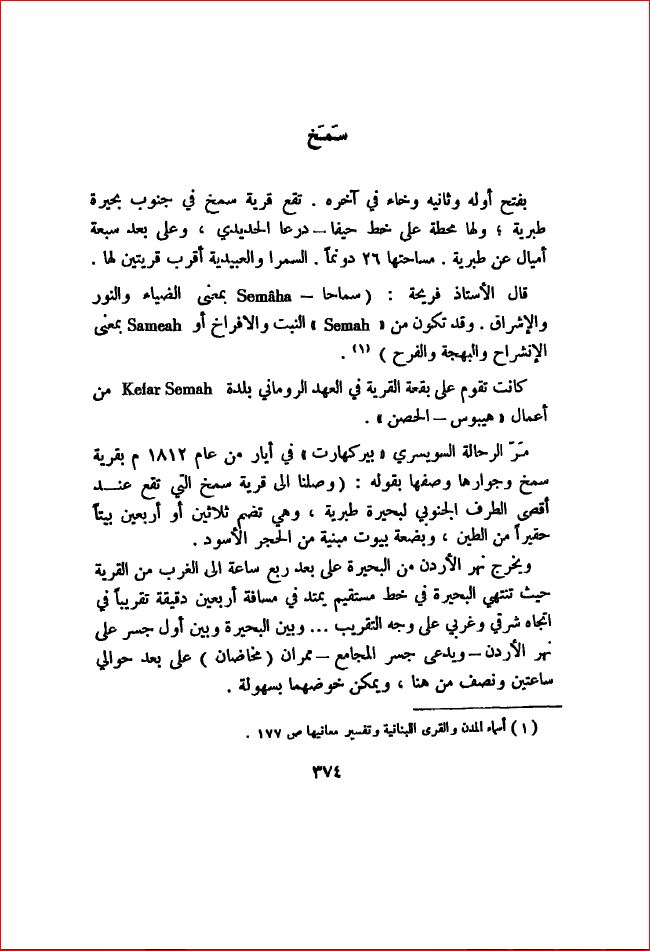 سَمَخ
بفتح أوله وثانيه وخاء في آخره . تقع قرية سمخ في جنوب بحيرة
طبرية ؛ ولها محطة على خط حيفا – درعا الحديدي ، وعلى بعد سبعة
أميال عن طبرية . مساحتها ٢٦ دونماً . السمرا والعبيدية أقرب قريتين لها .
قال الأستاذ فريحة : ( سماحا – Semâha بمعنى الضياء والنور
والإشراق . وقد تكون من « Semah » النبت والافراخ أو Sameah بمعنى
الإنشراح والبهجة والفرح ) (١) .
كانت تقوم على بقعة القرية في العهد الروماني بلدة Kefar Semah من
أعمال « هيبوس – الحصن » .
مَرّ الرحالة السويسري « بيركهارت » في أيار من عام ١٨١٢ م بقرية
سمخ وجوارها وصفها بقوله : ( وصلنا الى قرية سمخ التي تقع عنـــد
أقصى الطرف الجنوبي لبحيرة طبرية ، وهي تضم ثلاثين أو أربعين بيتاً
حقيراً من الطين ، وبضعة بيوت مبنية من الحجر الأسود .
ويخرج نهر الأردن من البحيرة على بعد ربع ساعة الى الغرب من القرية
حيث تنتهي البحيرة في خط مستقيم يمتد في مسافة أربعين دقيقة تقريباً في
اتجاه شرقي وغربي على وجه التقريب ... وبين البحيرة وبين أول جسر على
نهر الأردن – ويدعى جسر المجامع – ممران ( مخاضان ) على بعد حوالي
ساعتين ونصف من هنا ، ويمكن خوضهما بسهولة .
( ١ ) أسماء المدن والقرى اللبنانية وتفسير معانيها ص ١٧٧ .
٣٧٤